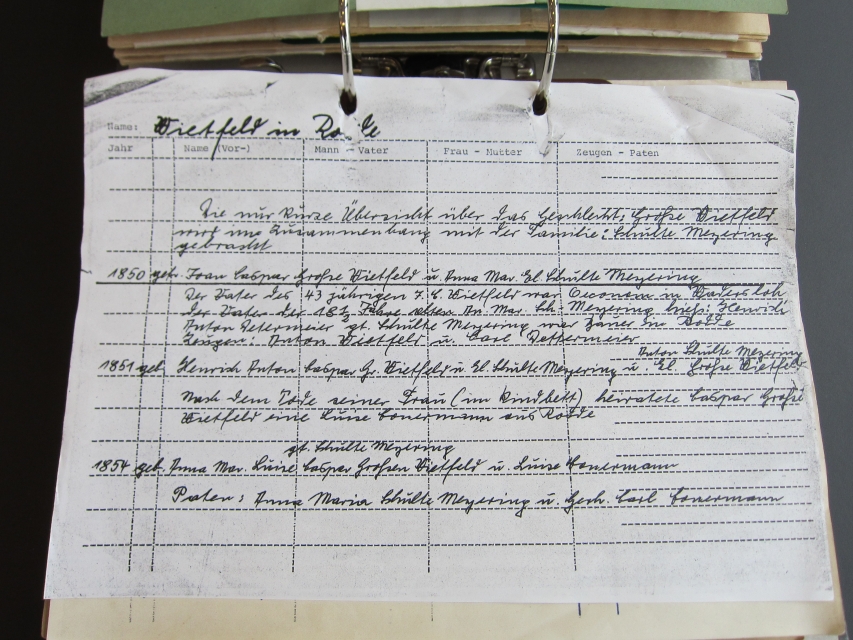 Name: Wietfeld in Rodde
Jahr Name (Vor-) Mann - Vater Frau - Mutter Zeugen - Paten
Die nur kurze Übersicht über das Geschlecht: Große Wietfeld
wird im Zusammenhang mit der Familie: Schulte Meyering
gebracht
1850 getr. Franz Caspar Große Wietfeld u. Anna Mar. El. Schulte Meyering
Der Vater des 43 jährigen F. C. Wietfeld war Oeconom in Wadersloh
der Vater der 18½ Jahre alten An. Mar. Sch. Meyering hieß: Henrich
Anton Petermeier gt. Schulte Meyering war in Rodde
Zeugen: Anton Wietfeld u. Carl Pettermeier
Anton Schulte Meyering
1851 geb. Henrich Anton Caspar Gr. Wietfeld u. El. Schulte Meyering u. El. Große Wietfeld
Nach dem Tode seiner Frau (im Kindbett) heiratete Caspar Große
Wietfeld eine Luise Conermann aus Rodde
gt. Schulte Meyering
1854 geb. Anna Mar. Luise Caspar Großen Wietfeld u. Luise Conermann
Paten: Anna Maria Schulte Meyering u. Gerh. Carl Conermann